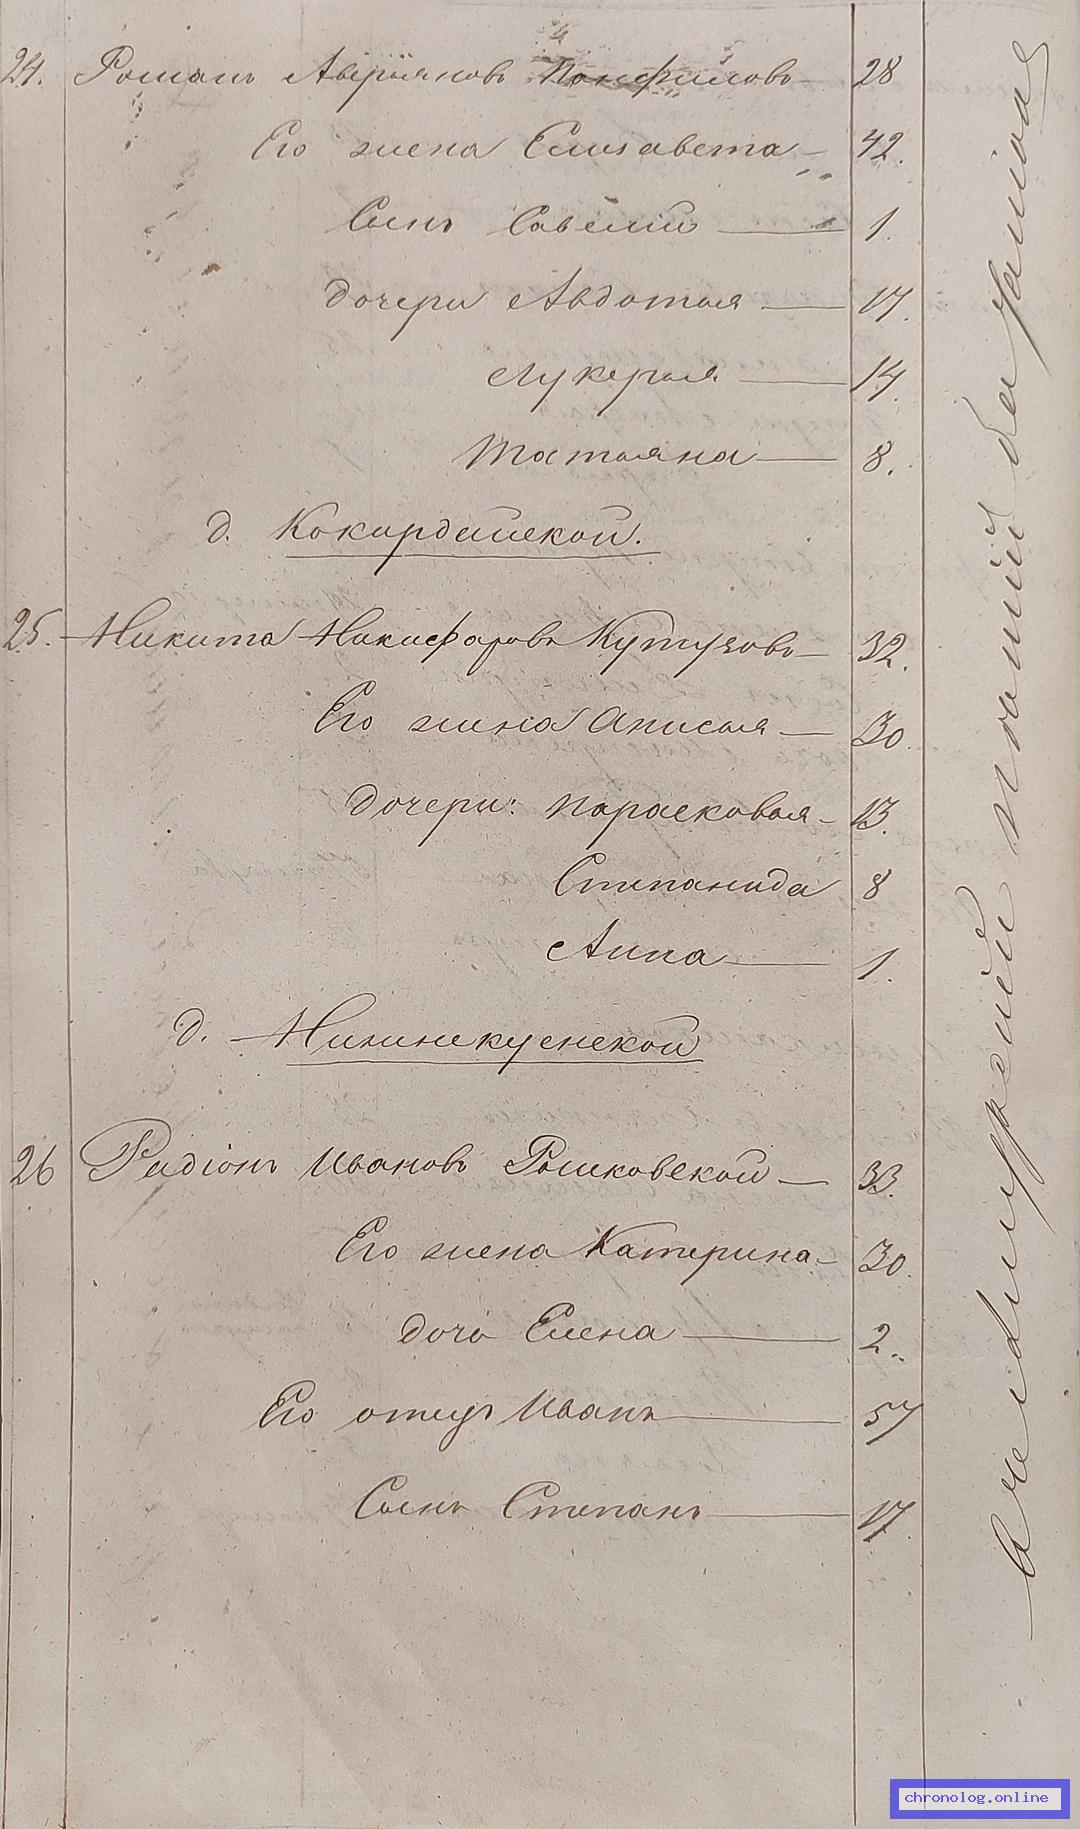 24. Романъ Аверьяновъ Панфиловъ 28
Его жена Елисавета 42.
Сынъ Савелий 1.
Дочери Авдотья 17.
Лукерья 14.
Татьяна 8.
д. Кокирдаинской.
25. Никита Никифоровъ Кутузовъ 32.
Его жена Анисья 30.
Дочери: Парасковья 13.
Степанида 8
Анна 1.
д. Нининскусенской
26 Радіонъ Ивановъ Рошковской 33.
Его жена Катерина 30.
Дочь Елена 2.
Его отецъ Иванъ 57
Сынъ Степанъ 17.
chronolog.online